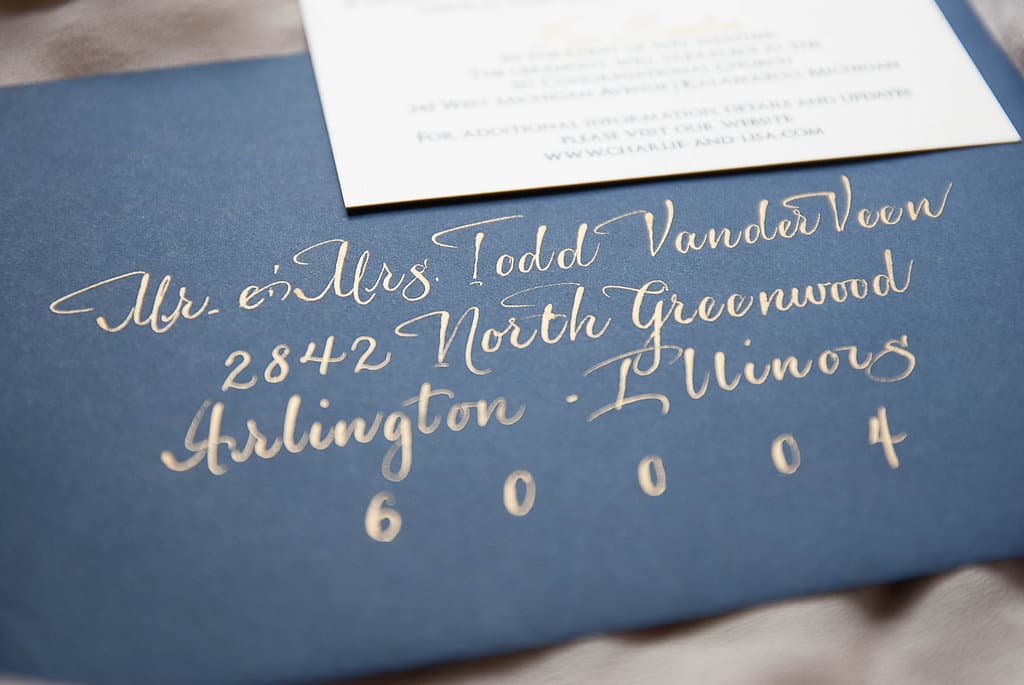 THE CEREMONY WILL TAKE PLACE AT THE
CONGREGATIONAL CHURCH
345 WEST MICHIGAN AVENUE | KALAMAZOO, MICHIGAN
FOR ADDITIONAL INFORMATION, DETAILS AND UPDATES
PLEASE VISIT OUR WEBSITE
WWW.CHARLIE-AND-LISA.COM
Mr. & Mrs. Todd VanderVeen
2842 North Greenwood
Arlington · Illinois
60004